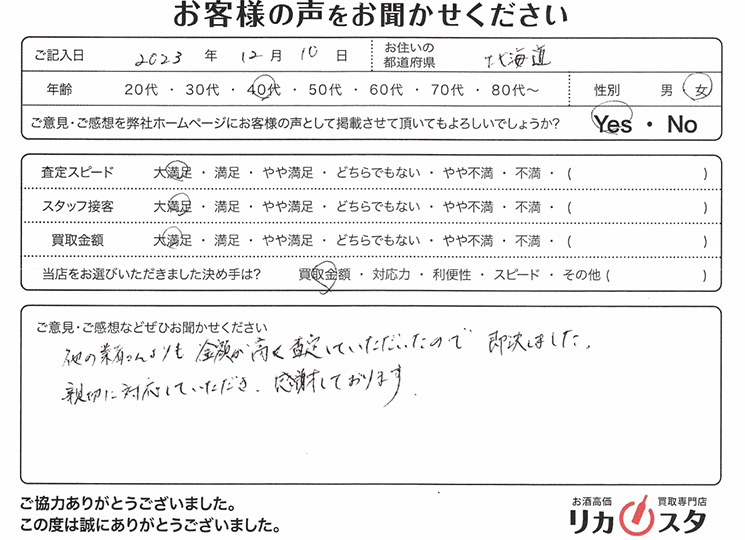 お客様の声をお聞かせください
ご記入日 2023 年 12 月 10 日 お住いの都道府県 北海道
年齢 20代 ・ 30代 ・ 40代 ・ 50代 ・ 60代 ・ 70代 ・ 80代～ 性別 男 ・ 女
ご意見・ご感想を弊社ホームページにお客様の声として掲載させて頂いてもよろしいでしょうか？ Yes ・ No
査定スピード 大満足 ・ 満足 ・ やや満足 ・ どちらでもない ・ やや不満 ・ 不満 ・ ( )
スタッフ接客 大満足 ・ 満足 ・ やや満足 ・ どちらでもない ・ やや不満 ・ 不満 ・ ( )
買取金額 大満足 ・ 満足 ・ やや満足 ・ どちらでもない ・ やや不満 ・ 不満 ・ ( )
当店をお選びいただきました決め手は？ 買取金額 ・ 対応力 ・ 利便性 ・ スピード ・ その他 ( )
ご意見・ご感想などぜひお聞かせください
他の業者さんよりも 金額が高く査定していただいたので 即決しました。
親切に対応していただき、感謝しております.
ご協力ありがとうございました。
この度は誠にありがとうございました。
お酒高価 買取専門店
リカスタ